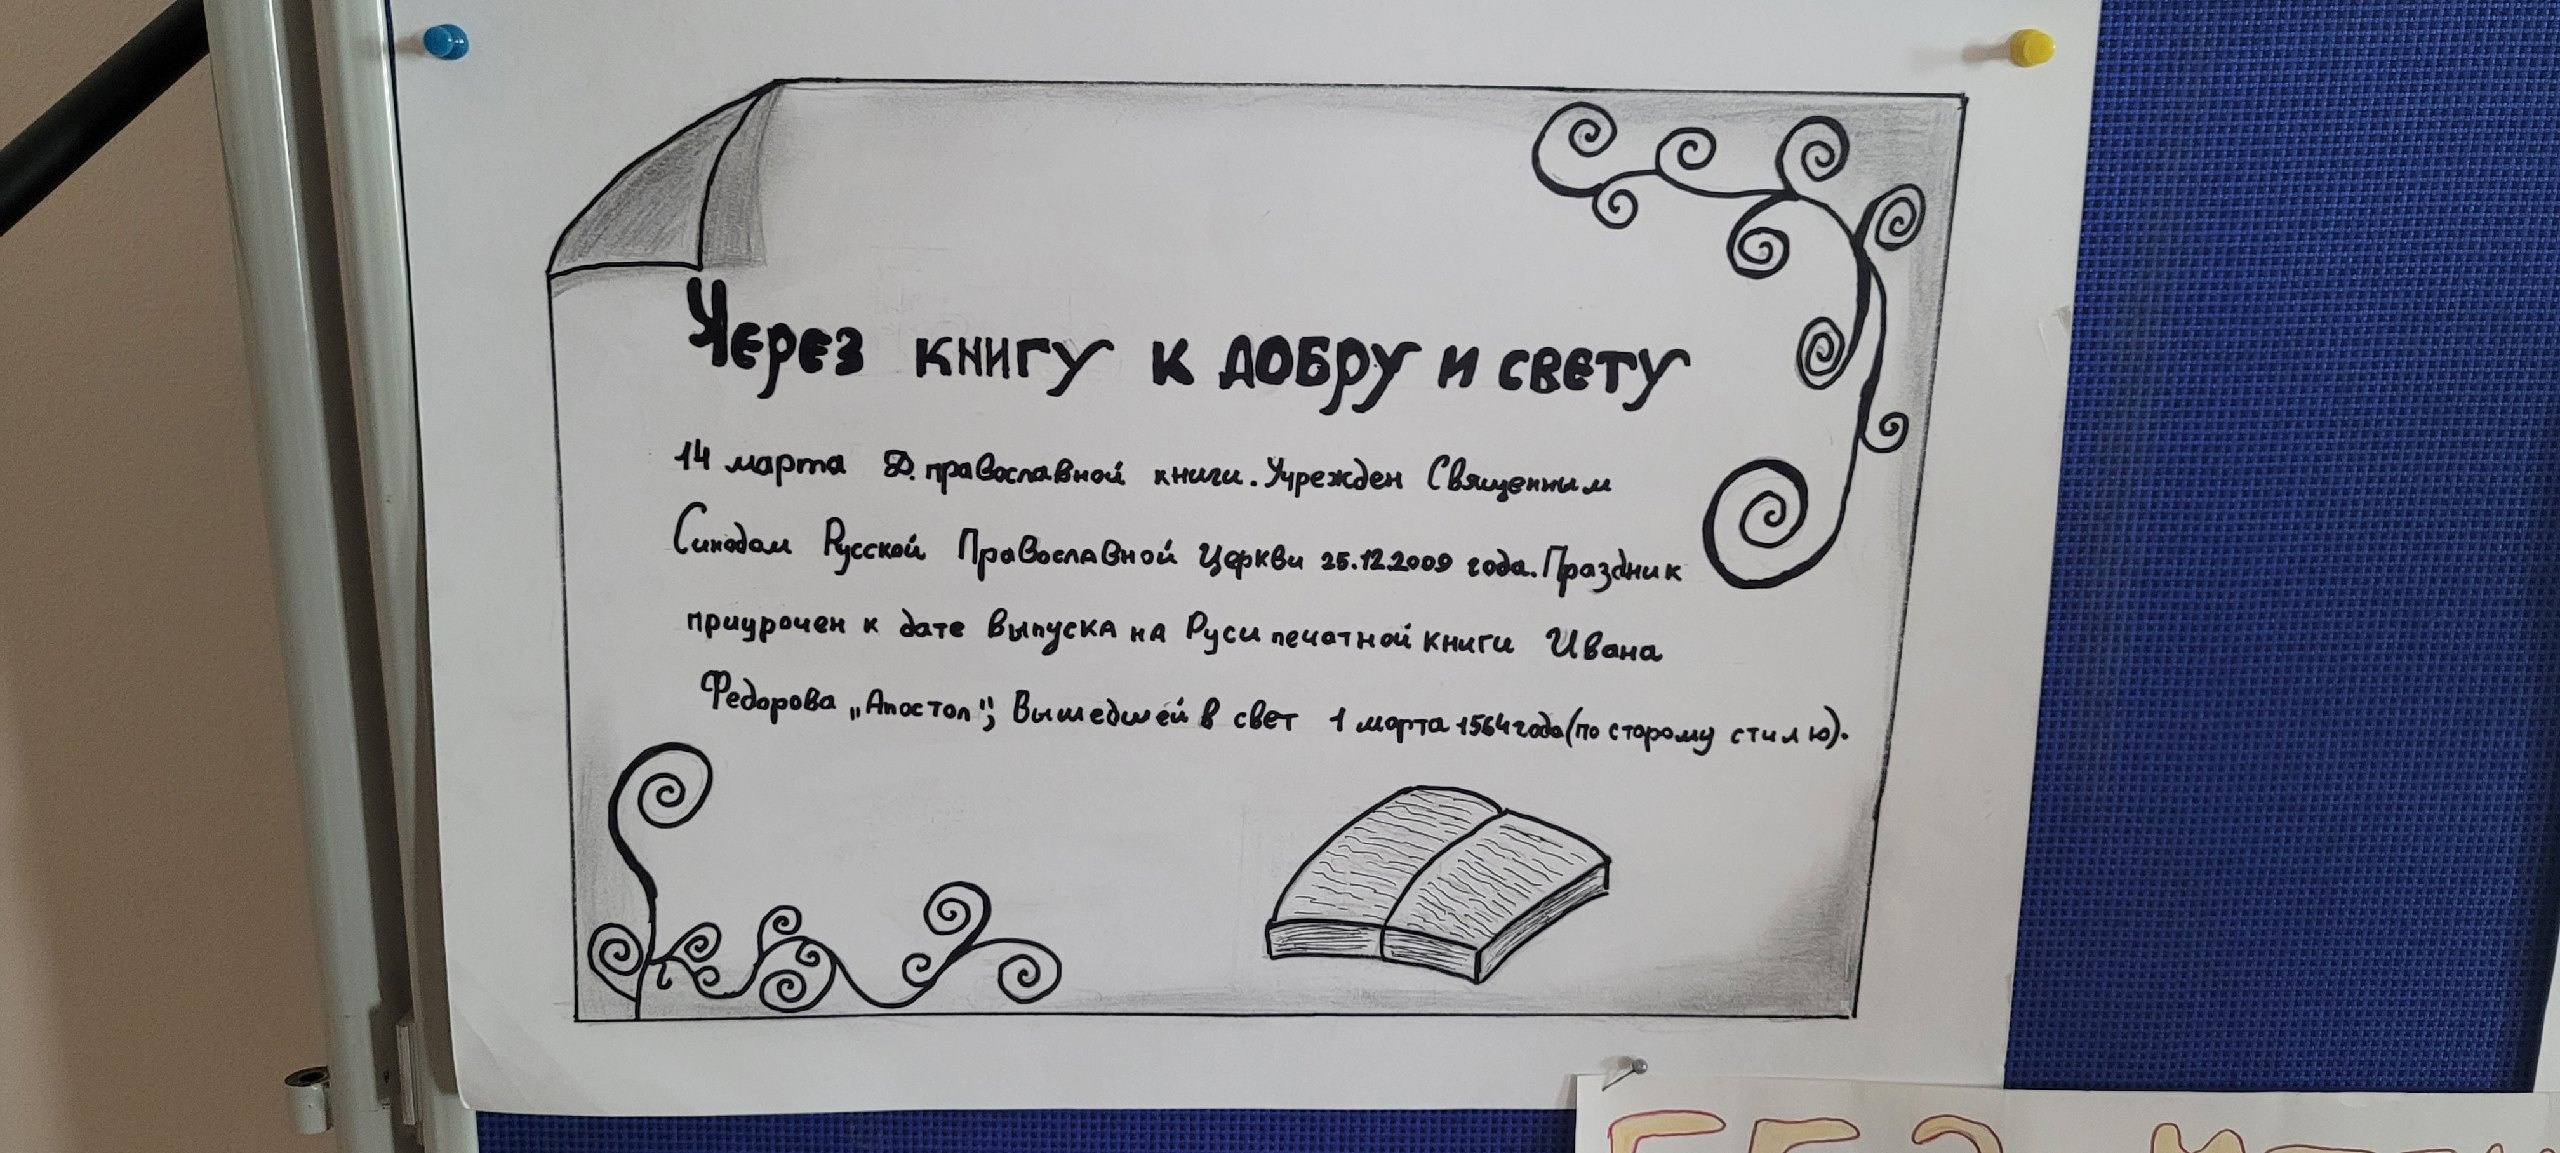 Через книгу к добру и свету
14 марта Д. православной книги. Учрежден Священным
Синодом Русской Православной Церкви 25.12.2009 года. Праздник
приурочен к дате выпуска на Руси печатной книги Ивана
Федорова „Апостол", вышедшей в свет 1 марта 1564 года (по сторому стилю).